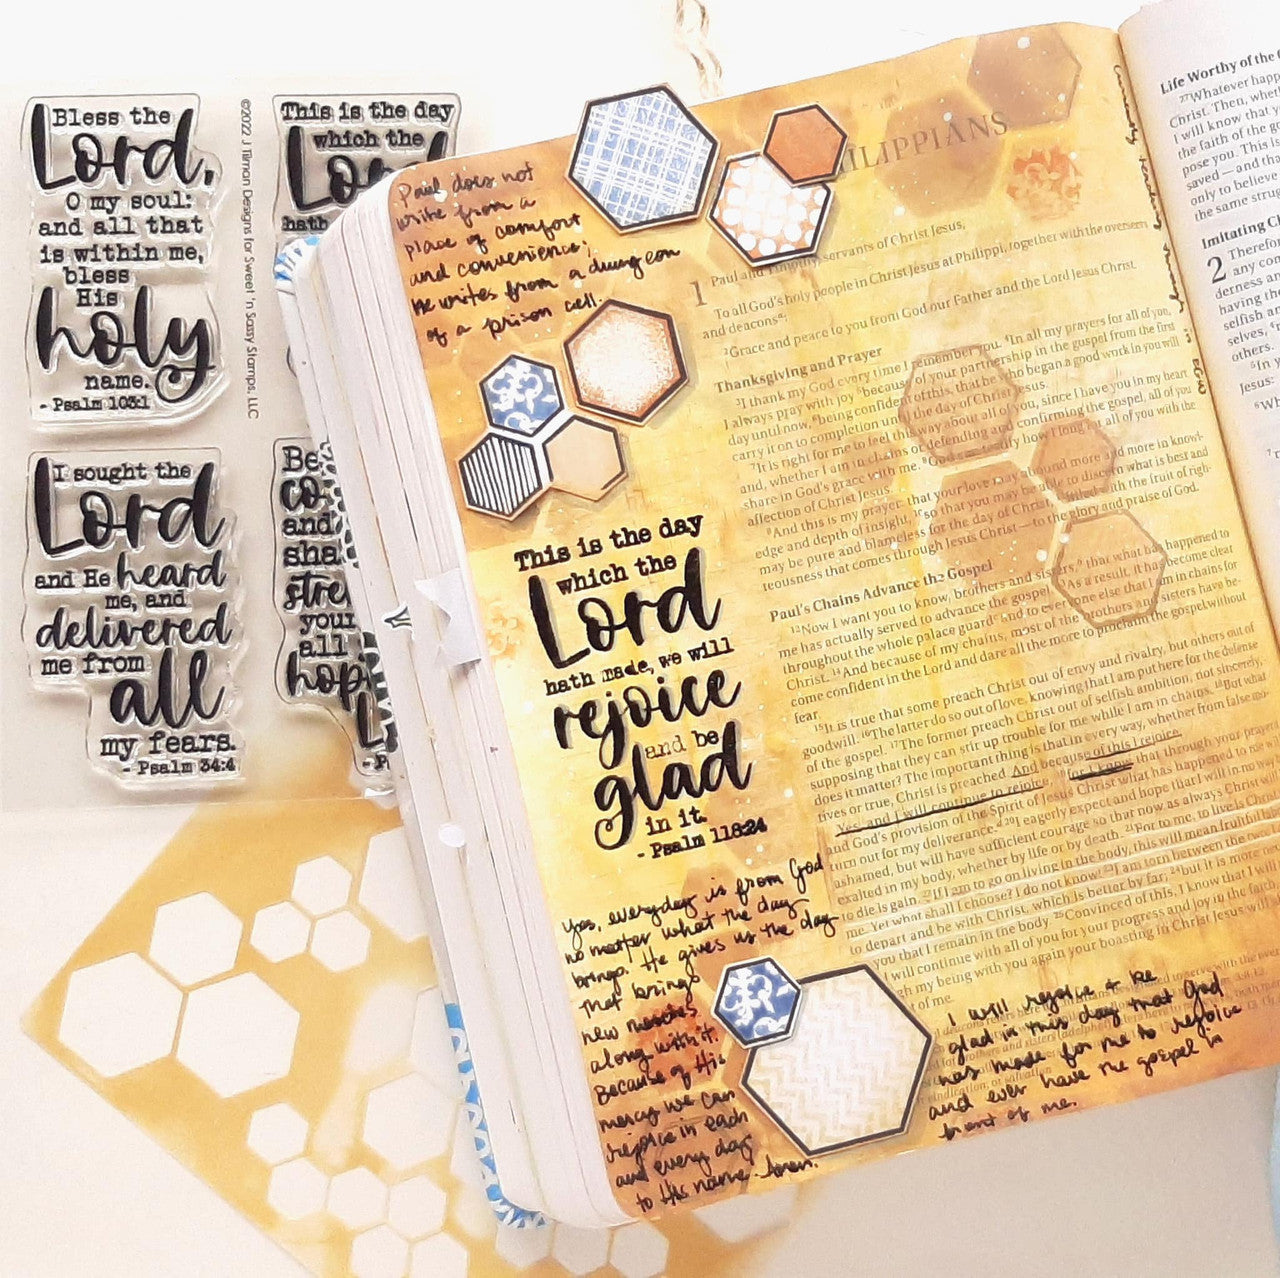 Bless the
Lord,
O my soul:
and all that
is within me,
bless
His
holy
name.
- Psalm 103:1
©2022 J Tilman Designs for Sweet 'n Sassy Stamps, LLC
This is the day
which the
hath
I sought the
Lord
and He heard
me, and
delivered
me from
all
my fears.
- Psalm 34:4
Be
and
your
all
Paul does not
write from a
place of comfort
and convenience;
he writes from a dungeon
of a prison cell.
This is the day
which the
Lord
hath made, we will
rejoice
and be
glad
in it.
- Psalm 118:24
Yes, everyday is from God
no matter what the day
brings. He gives us the day
that brings
new
along with it.
Because of His
mercy we can
rejoice in each
and every day
to His name Amen.
PHILIPPIANS
1 Paul and Timothy, servants of Christ Jesus,
To all God's holy people in Christ Jesus at Philippi, together with the overseers
and deacons:
2Grace and peace to you from God our Father and the Lord Jesus Christ.
Thanksgiving and Prayer
3I thank my God every time I remember you. 4In all my prayers for all of you,
I always pray with joy 5because of your partnership in the gospel from the first
day until now, 6being confident of this, that he who began a good work in you will
carry it on to completion until the day of Christ Jesus.
7It is right for me to feel this way about all of you, since I have you in my heart
and, whether I am in chains or defending and confirming the gospel, all of you
share in God's grace with me. 8God can testify how I long for all of you with the
affection of Christ Jesus.
9And this is my prayer: that your love may abound more and more in knowl-
edge and depth of insight, 10so that you may be able to discern what is best and
may be pure and blameless for the day of Christ, 11filled with the fruit of right-
teousness that comes through Jesus Christ—to the glory and praise of God.
Paul's Chains Advance the Gospel
12Now I want you to know, brothers and sisters, that what has happened to
me has actually served to advance the gospel. 13As a result, it has become clear
throughout the whole palace guard and to everyone else that I am in chains for
Christ. 14And because of my chains, most of the brothers and sisters have be-
come confident in the Lord and dare all the more to proclaim the gospel without
fear.
15It is true that some preach Christ out of envy and rivalry, but others out of
goodwill. 16The latter do so out of love, knowing that I am put here for the defense
of the gospel. 17The former preach Christ out of selfish ambition, not sincerely,
supposing that they can stir up trouble for me while I am in chains. 18But what
does it matter? The important thing is that in every way, whether from false mo-
tives or true, Christ is preached. And because of this I rejoice.
Yes, and I will continue to rejoice, 19for I know that through your prayers
and God's provision of the Spirit of Jesus Christ what has happened to me will
turn out for my deliverance. 20I eagerly expect and hope that I will in no way be
ashamed, but will have sufficient courage so that now as always Christ
exalted in my body, whether by life or by death. 21For to me, to live is Christ
to die is gain. 22If I am to go on living in the body, this will mean fruitful
me. Yet what shall I choose? I do not know! 23I am torn between the two
to depart and be with Christ, which is better by far; 24but it is more
you that I remain in the body. 25Convinced of this, I know that I
will continue with all of you for your progress and joy in the faith
my being with you again your boasting in Christ Jesus will
of me.
I will rejoice & be
glad in this day that God
has made for me to rejoice
and ever have the gospel in
front of me.
Life Worthy of the
27Whatever happ
Christ. Then, whet
I will know that y
the faith of the g
pose you. This is
saved—and that
only to believe
the same strug
Imitating Ch
2 Therefor
any com
derness and
having the
selfish
selves, 4
others.
5In y
Jesus: